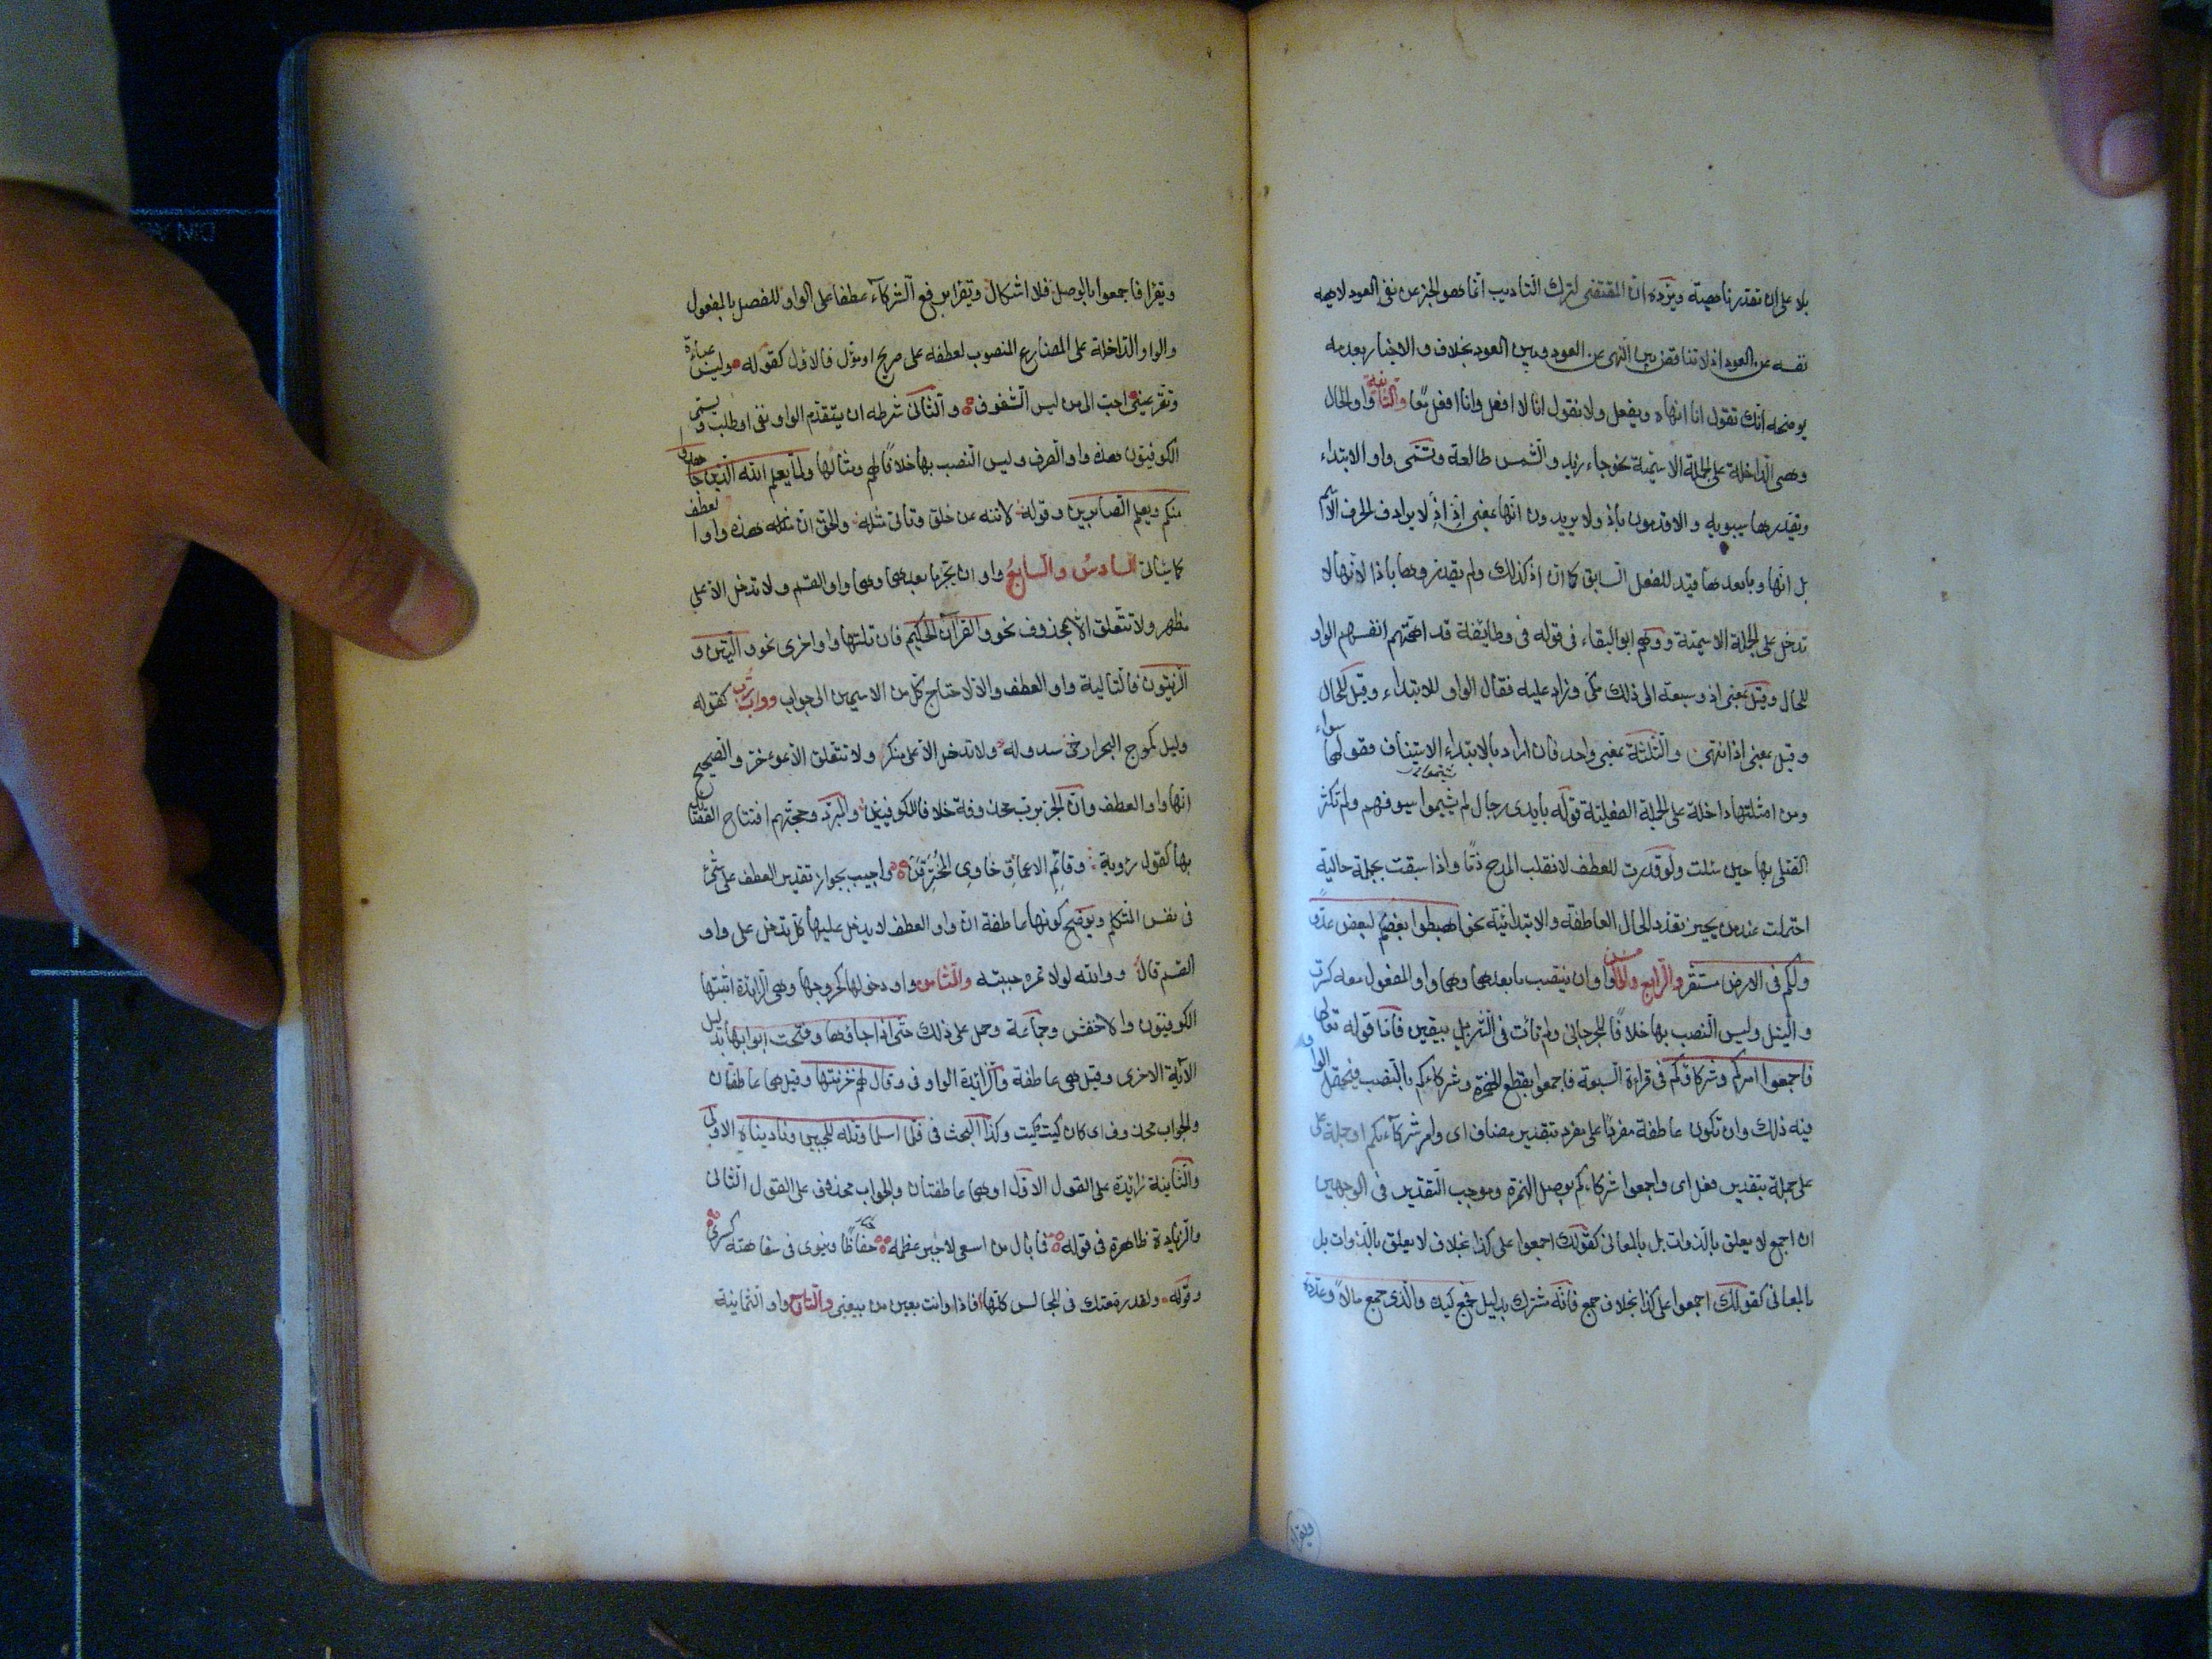 بلا على ان تقدر ناهية ويردّه ان المقتضى لترك التاديب انما هو الخبر عن نفى العود لا نهيه
نفسه عن العود اذ لا تناقض بين النهى عن العود وبين العود بخلاف الاخبار بعدمه
يوضحه انك تقول انا انهاه ويفعل ولا تقول انا لا افعل وانا افعل معا والثانية واو الحال
وهى الداخلة على الجملة الاسمية نحو جاء زيد والشمس طالعة وتسمى واو الابتداء
ويقدرها سيبويه والاقدمون باذ ولا يريدون انها بمعنى اذ اذ لا يرادف الحرف الاسم
بل انها وما بعدها قيد للفعل السابق كما ان اذ كذلك ولم يقدروها باذا لانها لا
تدخل على الجملة الاسمية ووهم ابو البقاء فى قوله فى وطائفة قد اهمتهم انفسهم الواو
للحال وقيل بمعنى اذ وسبقه الى ذلك مكى وزاد عليه فقال الواو للابتداء وقيل للحال
وقيل بمعنى اذ انتهى والثلثة بمعنى واحد فان اراد بالابتداء الاستيناف فقولهما سواء
ومن امثلتها داخلة على الجملة الفعلية قوله بايدى رجال لم يشيموا سيوفهم ولم تكثر
القتلى بها حين سلت ولو قدرت للعطف لانقلب المدح ذما واذا سبقت بجملة حالية
احتملت عند من يجيز تعدد الحال العاطفة والابتدائية نحو اهبطوا بعضكم لبعض عدو
ولكم فى الارض مستقر والرابع والخامس واوان ينتصب ما بعدهما وهما واو المفعول معه كسرت
والنيل وليس النصب بها خلافا للجرجانى ولم تات فى التنزيل بيقين فاما قوله تعالى
فاجمعوا امركم وشركاؤكم فى قراءة السبعة فاجمعوا بقطع الهمزة وشركاءكم بالنصب فيحتمل الواو
فيه ذلك وان تكون عاطفة مفردا على مفرد بتقدير مضاف اى وامر شركاءكم او جملة على
على جملة بتقدير فعل اى واجمعوا شركاءكم بوصل الهمزة وموجب التقدير فى الوجهين
ان اجمع لا يعلق بالذوات بل بالمعانى كقولك اجمعوا على كذا بخلاف لا يعلق بالذوات بل
بالمعانى كقولك اجمعوا على كذا بخلاف جمع فانه مشترك بدليل فجمع كيده والذى جمع مالا وعدده
ويقرا
ويقرا فاجمعوا بالوصل فلا اشكال ويقرا برفع الشركاء عطفا على الواو للفصل بالمفعول
والواو الداخلة على المضارع المنصوب لعطفه على صريح او مؤل فالاول كقوله ولبس عباءة
وتقر عينى احب الى من لبس الشفوف والثانى شرطه ان يتقدم الواو نفى او طلب ويسمى
الكوفيون هذه واو الصرف وليس النصب بها خلافا لهم ومثالها ولما يعلم الله الذين جاهدوا
منكم ويعلم الصابرين وقوله لا تنه عن خلق وتاتى مثله والحق ان هذه واو العطف
كما سياتى السادس والسابع واوان ينجر ما بعدهما وهما واو القسم ولا تدخل الا على
مظهر ولا تتعلق الا بمحذوف نحو والقرآن الحكيم فان تلتها واو اخرى نحو والتين و
الزيتون فالتالية واو العطف والا لاحتاج كل من الاسمين الى جواب وواو رب كقوله
وليل كموج البحر ارخى سدوله ولا تدخل الا على منكر ولا تتعلق الا بموخر والصحيح
انها واو العطف وان الجر برب محذوفة خلافا للكوفيين والمبرد وحجتهم افتتاح القصائد
بها كقول رؤبة وقاتم الاعماق خاوى المخترقن واجيب بجواز تقدير العطف على شئ
فى نفس المتكلم ويوضح كونها عاطفة ان واو العطف لا يدخل عليها كما تدخل على واو
القسم قال ووالله لولا تمره حببته والثامن واو دخولها كخروجها وهى الزايدة اثبتها
الكوفيون والاخفش وجماعة وحمل على ذلك حتى اذا جاؤها وفتحت ابوابها بدليل
الآية الاخرى وقيل هى عاطفة والزايدة الواو فى وقال لهم خزنتها وقيل هما عاطفتان
والجواب محذوف اى كان كيت وكيت وكذا البحث فى فلما اسلما وتله للجبين وناديناه الاولى
والثانية زايدة على القول الاول او هما عاطفتان والجواب محذوف على القول الثانى
والزيادة ظاهرة فى قوله فما بال من اسعى لاجبر عظمه حفاظا وينوى من سفاهته كسرى
وقوله ولقد رمقتك فى المجالس كلها فاذا وانت بعين من يبغينى والتاسع واو الثمانية